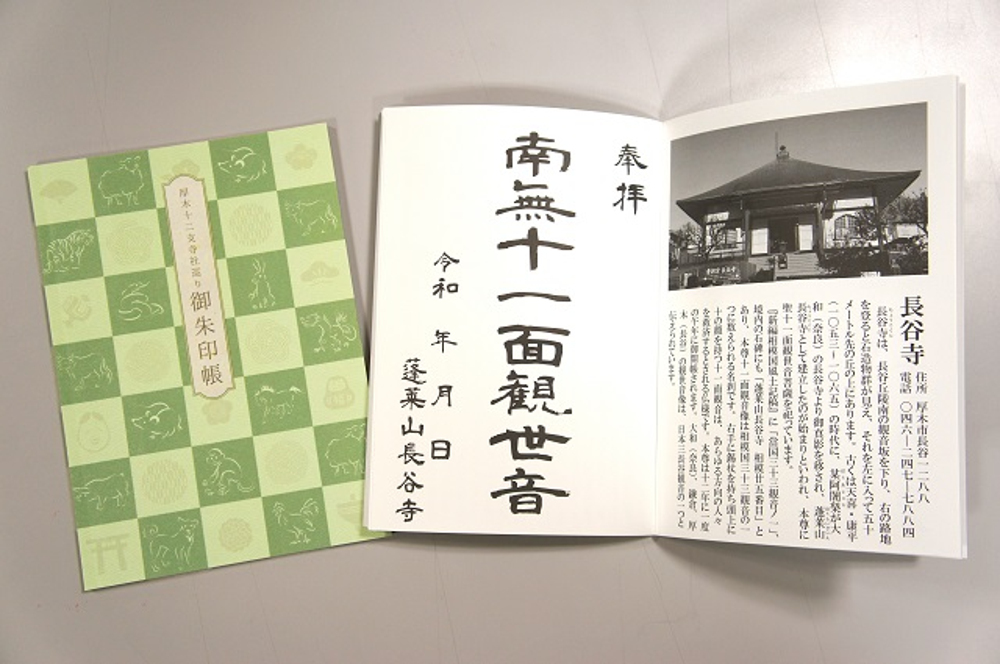 厚木十二支寺社巡り
御朱印帳
奉拝
南無十一面観世音
令和 年 月 日
蓬莱山長谷寺
長谷寺 住所 厚木市長谷一二八八
電話 〇四六―二四七―七八八四
長谷寺は、長谷丘陵南の観音坂を下り、右の路地
を登ると石造物群が見え、それを左に入って五十
メートル先の丘の上にあります。古くは天喜・康平
(一〇五三〜一〇六五)の時代に、某阿闍梨が大
和(奈良)の長谷寺より御真影を移され、蓬莱山
長谷寺として建立したのが始まりといわれ、本尊に
聖十一面観世音菩薩を祀っています。
『新編相模国風土記稿』に「当国三十三観音ノ一」、
境内の石碑にも「蓬莱山長谷寺 相模廿五番目」と
あり、本尊十一面観音像は相模国三十三観音の一
つに数えられる名刹です。右手に錫杖を持ち頭上に
十の顔を持つ十一面観音は、あらゆる方向の人々
を救済するとされる仏様です。本尊は十二年に一度
の午年に御開帳されます。大和(奈良)、鎌倉、厚
木(長谷)の観世音像は、日本三長谷観音の一つと
伝えられています。